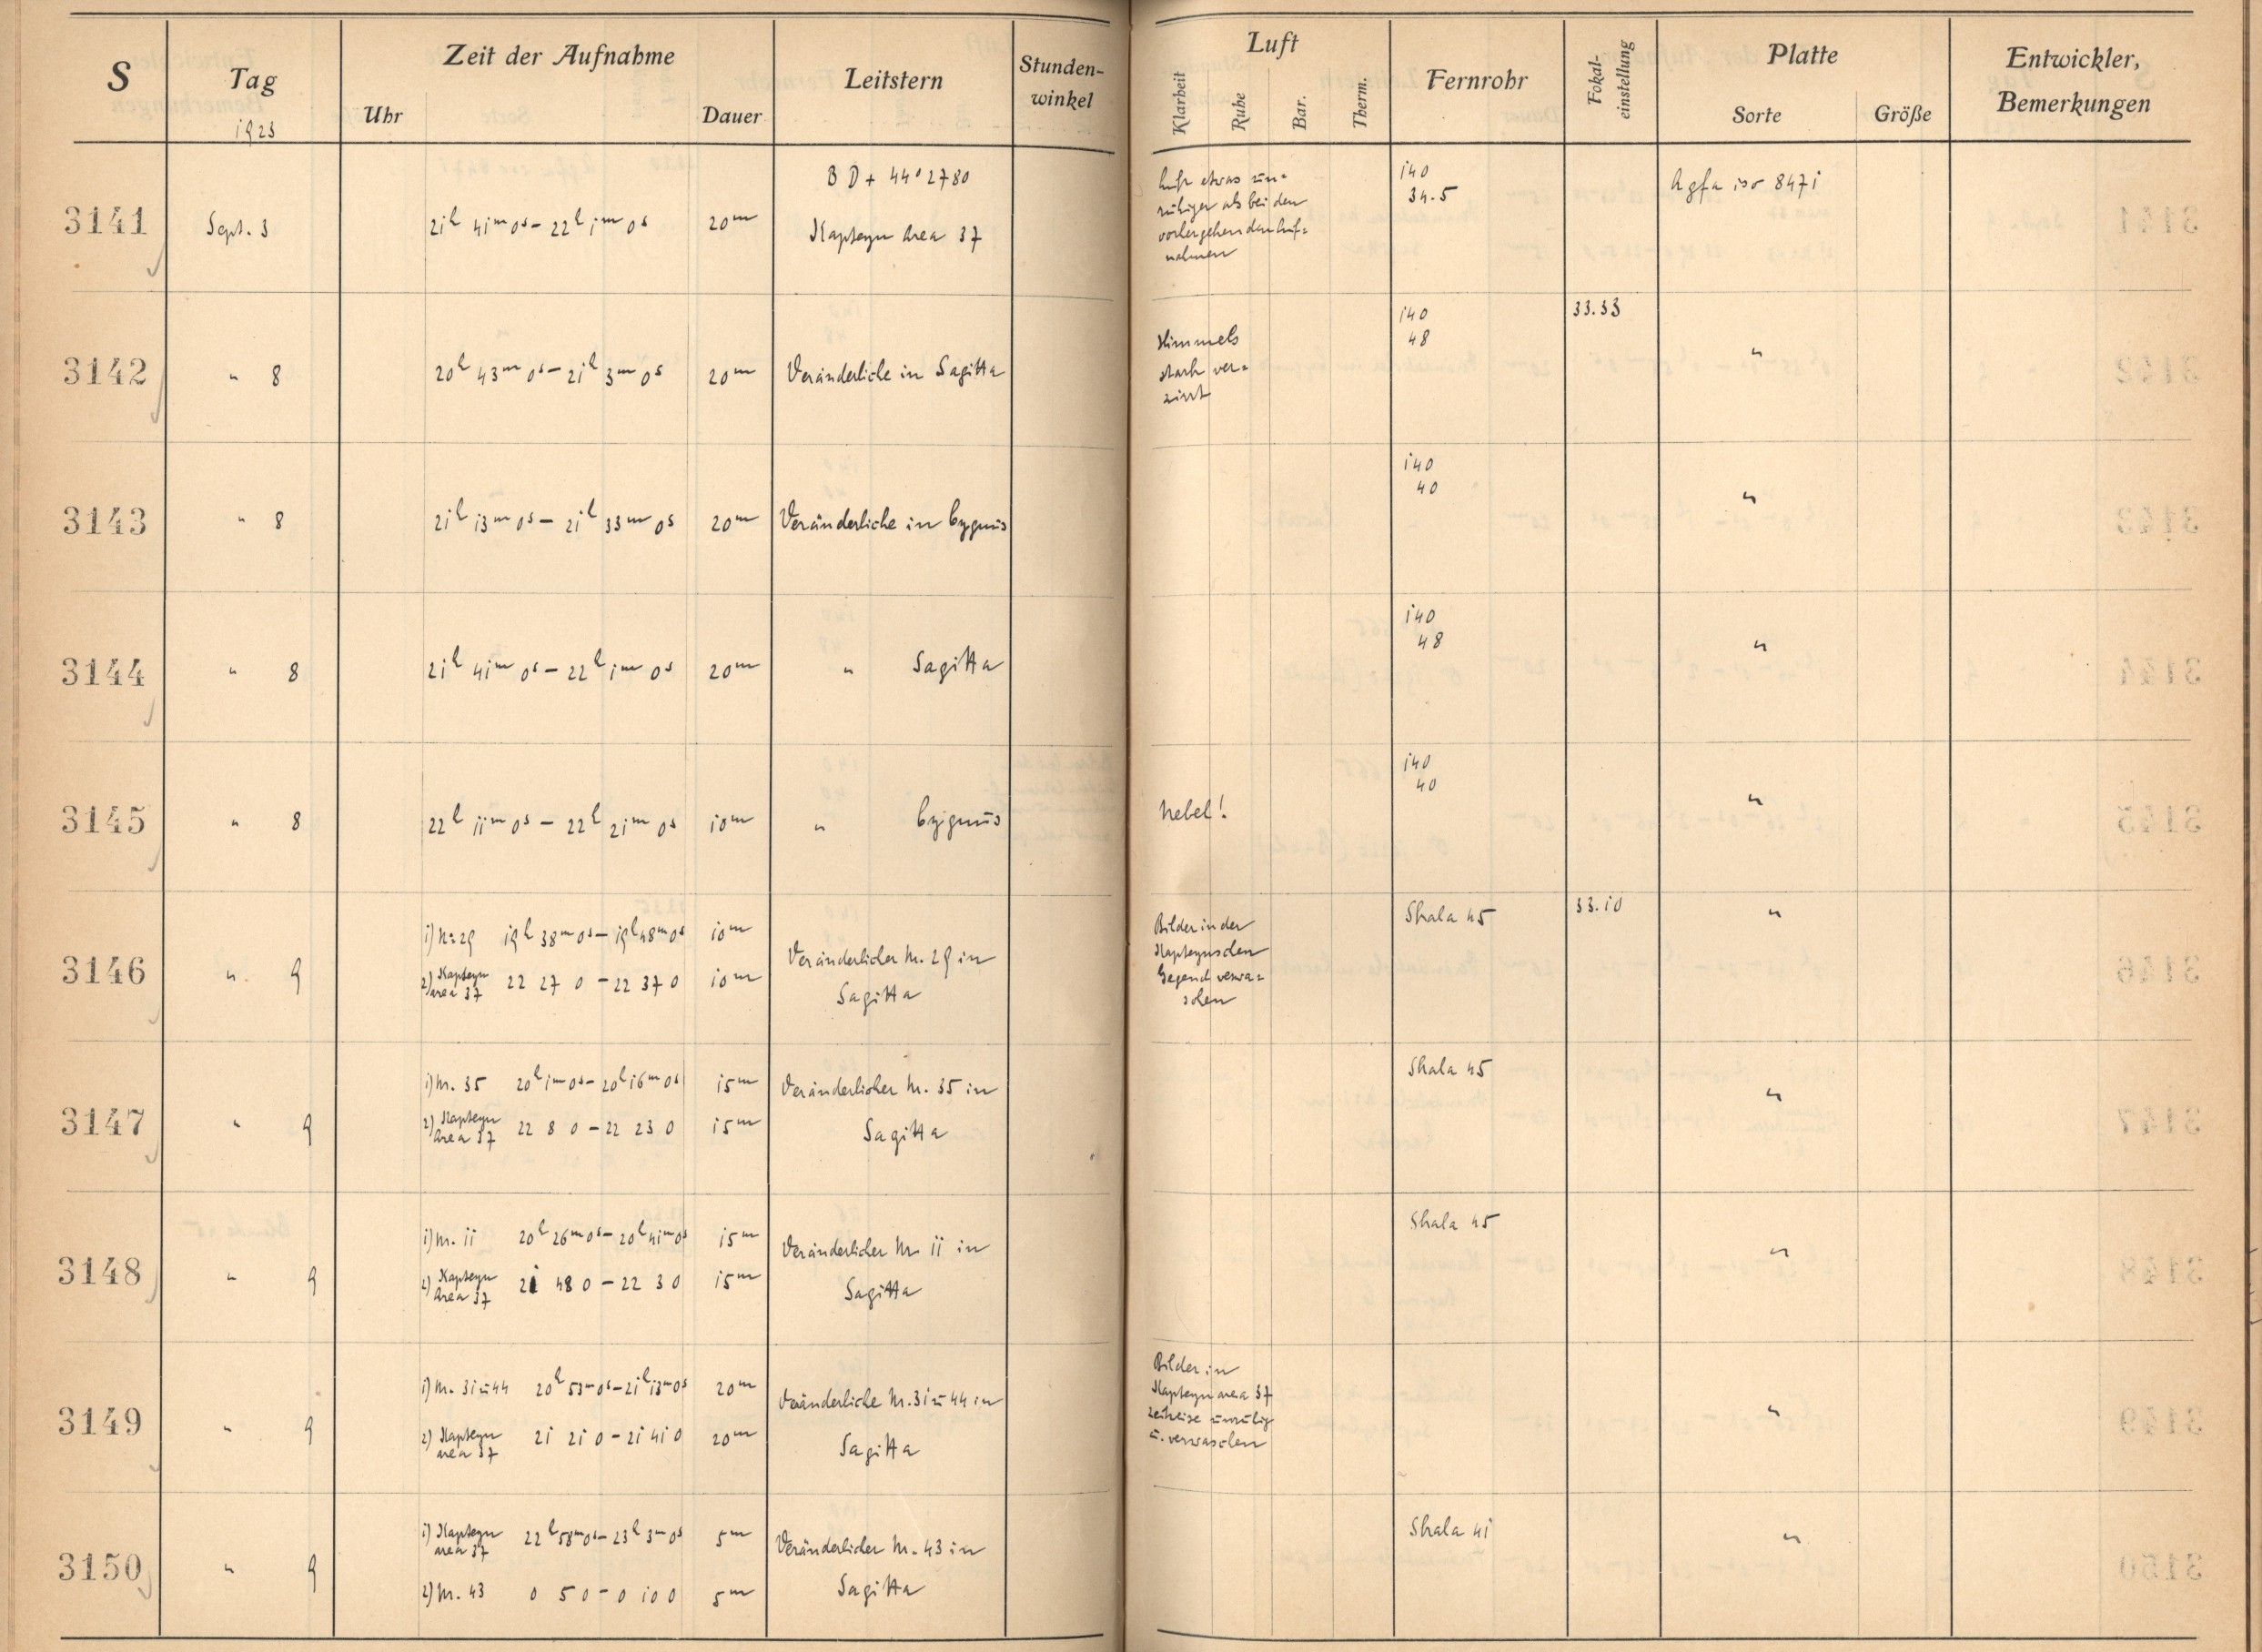 S Tag Zeit der Aufnahme Leitstern Stunden-winkel Luft Fernrohr Fokal-einstellung Platte Entwickler, Bemerkungen
1923 Uhr Dauer Klarheit Ruhe Bar. Therm. Sorte Größe
BD + 44° 2780
3141 Sept. 3 21h 41m 0s – 22h 1m 0s 20m Kapteyn Area 37
Luft etwas un=
ruhiger als bei den
vorhergehenden Auf=
nahmen
140
34.5
Agfa iso 8471
3142 " 8 20h 43m 0s – 21h 3m 0s 20m Veränderliche in Sagitta
Himmels
stark ver=
140
48
33.33
"
3143 " 8 21h 13m 0s – 21h 33m 0s 20m Veränderliche in Cygnus
140
40
"
3144 " 8 21h 41m 0s – 22h 1m 0s 20m " Sagitta
140
48
"
3145 " 8 22h 11m 0s – 22h 21m 0s 10m " Cygnus
Nebel!
140
40
"
3146 " 9
1) Nr 29 19h 38m 0s – 19h 48m 0s 10m
2) Kapteyn area 37 22 27 0 – 22 37 0 10m
Veränderlicher Nr. 29 in
Sagitta
Bilder in der
Kapteynschen
Gegend verwa=
schen
Skala 45
33.10
"
3147 " 9
1) Nr. 35 20h 1m 0s – 20h 16m 0s 15m
2) Kapteyn Area 37 22 8 0 – 22 23 0 15m
Veränderlicher Nr. 35 in
Sagitta
Skala 45
"
3148 " 9
1) Nr. 11 20h 26m 0s – 20h 41m 0s 15m
2) Kapteyn Area 37 21 48 0 – 22 3 0 15m
Veränderlicher Nr. 11 in
Sagitta
Skala 45
"
3149 " 9
1) Nr. 31 u 44 20h 53m 0s – 21h 13m 0s 20m
2) Kapteyn area 37 21 21 0 – 21 41 0 20m
Veränderliche Nr. 31 u 44 in
Sagitta
Bilder in
Kapteyn area 37
zeitweise unruhig
u. verwaschen
"
3150 " 9
1) Kapteyn area 37 22h 58m 0s – 23h 3m 0s 5m
2) Nr. 43 0 5 0 – 0 10 0 5m
Veränderlicher Nr. 43 in
Sagitta
Skala 41
"